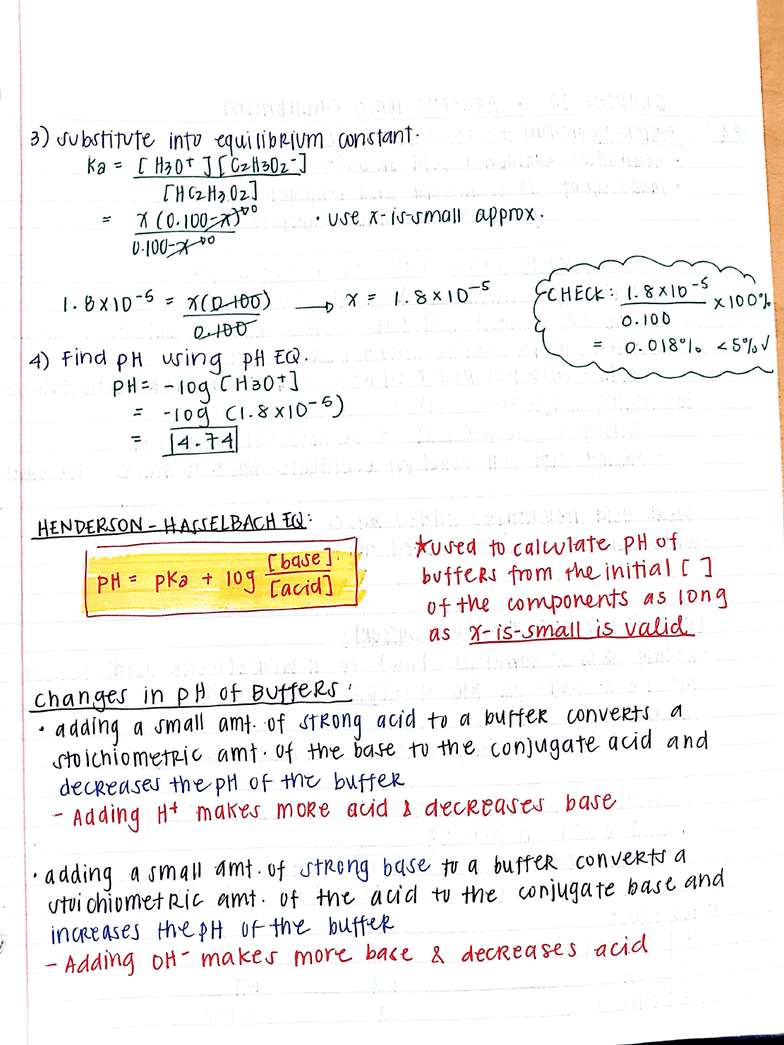 3) substitute into equilibrium constant.
Ka = [H3O+][C2H3O2-]
[HC2H3O2]
= x(0.100-x)^0 • use x-is-small approx.
0.100-x^0
1.8x10-5 = x(0.100) → x = 1.8x10-5
0.100
CHECK: 1.8x10-5 x100%
0.100
= 0.018% <5% ✓
4) Find pH using pH EQ.
pH = -log [H3O+]
= -log (1.8x10-5)
= 4.74
HENDERSON-HASSELBACH EQ:
pH = pKa + log [base]
[acid]
★used to calculate pH of
buffers from the initial [ ]
of the components as long
as x-is-small is valid
Changes in pH of Buffers:
• adding a small amt. of strong acid to a buffer converts a
stoichiometric amt. of the base to the conjugate acid and
decreases the pH of the buffer
- Adding H+ makes more acid & decreases base
• adding a small amt. of strong base to a buffer converts a
stoichiometric amt. of the acid to the conjugate base and
increases the pH of the buffer
- Adding OH- makes more base & decreases acid